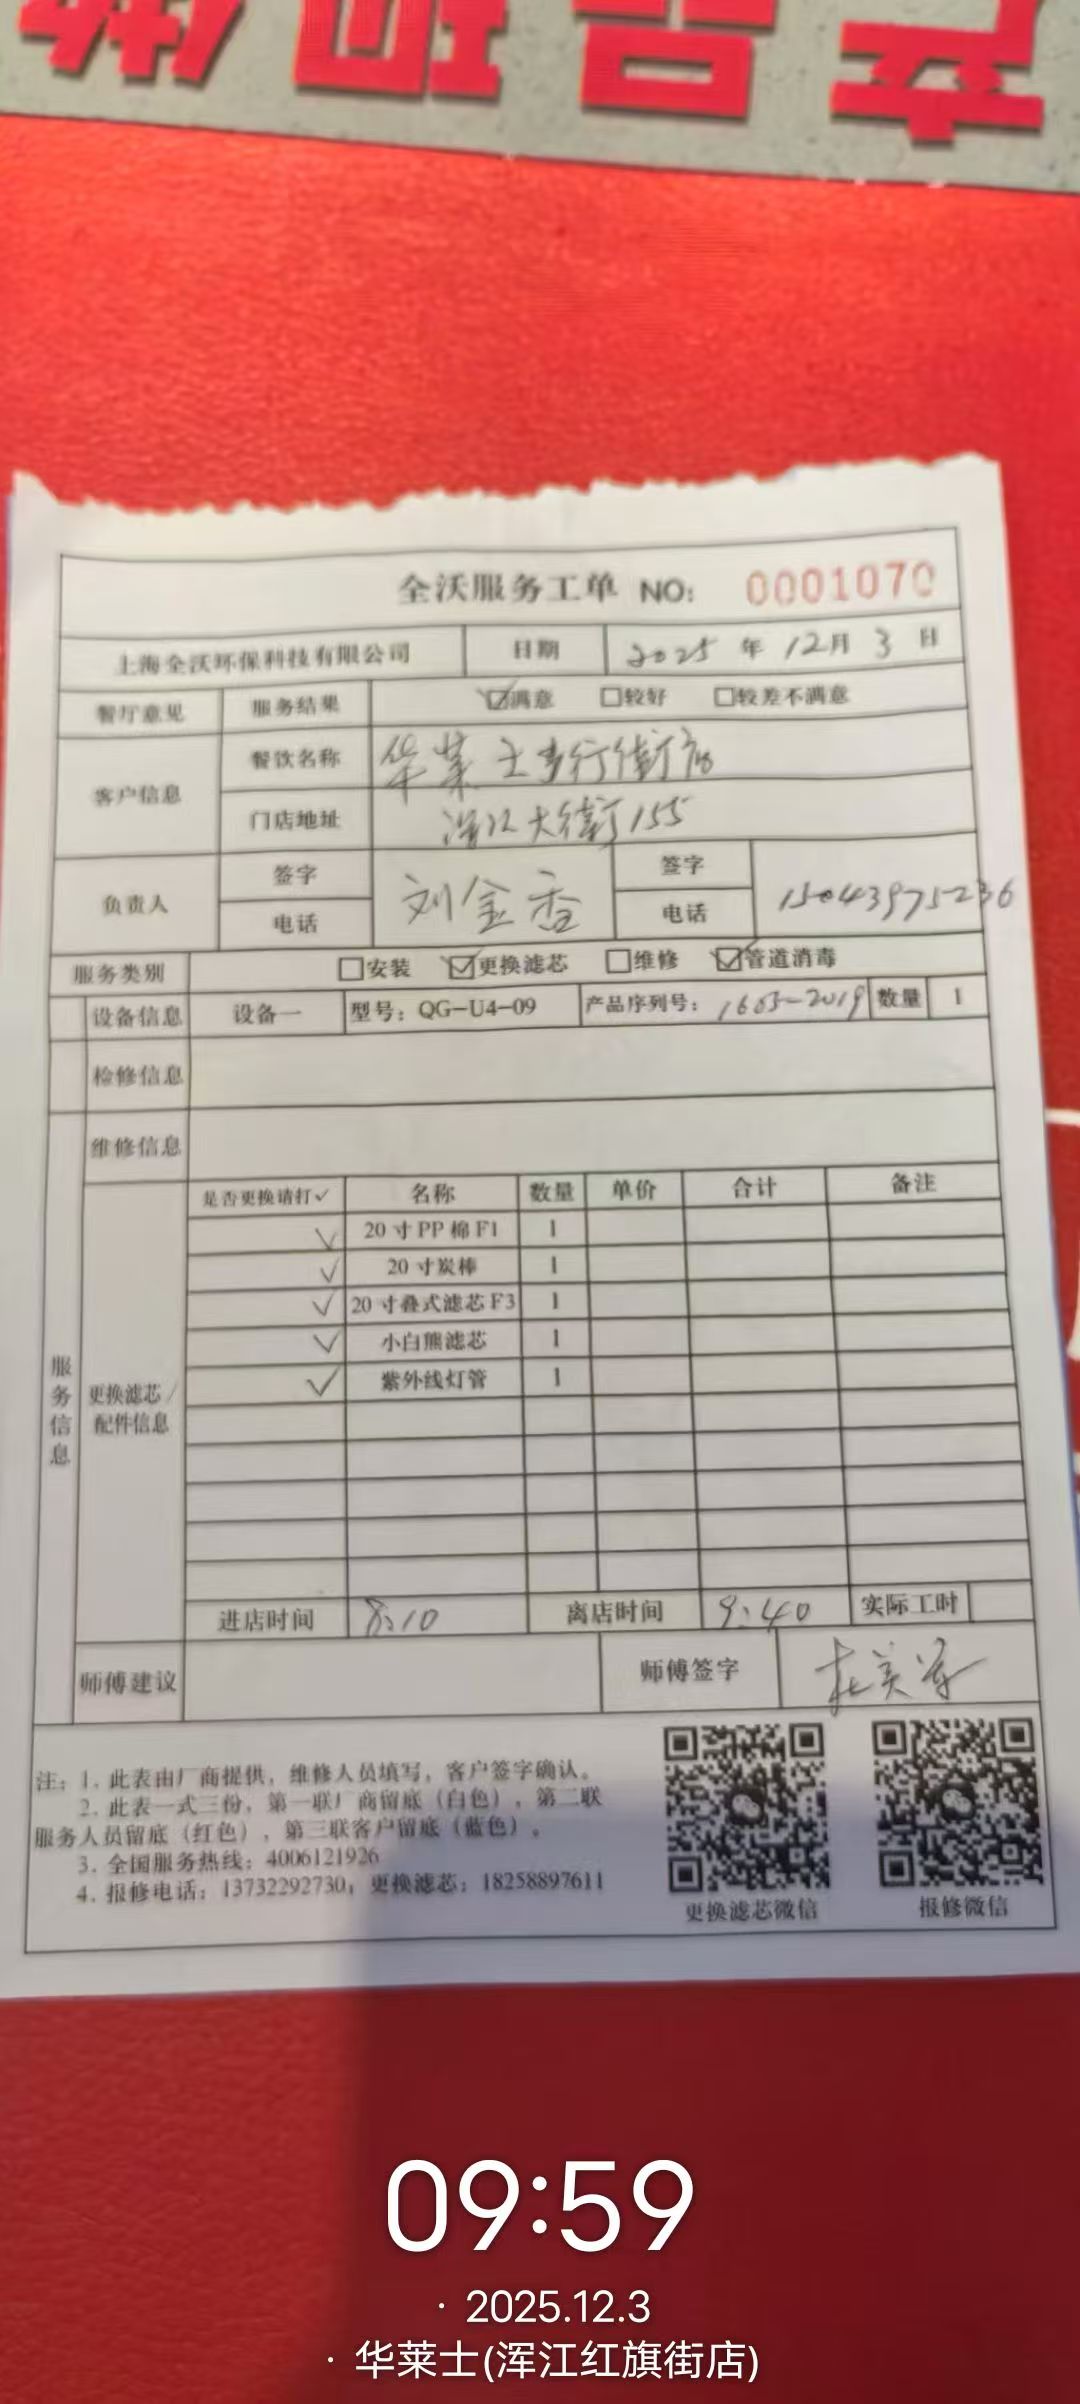 全沃服务工单 NO: 0001070
上海全沃环保科技有限公司 日期 2025 年 12月 3 日
餐厅意见 服务结果 ☑满意 □较好 □较差不满意
客户信息 餐饮名称 华莱士步行街店
门店地址 浑江大街155
负责人 签字 刘金香 签字
电话 电话 15043975236
服务类别 □安装 ☑更换滤芯 □维修 ☑管道消毒
设备信息 设备一 型号：QG-U4-09 产品序列号：1603-2019 数量 1
检修信息
维修信息
服务信息
更换滤芯/配件信息
是否更换请打✓ 名称 数量 单价 合计 备注
✓ 20寸PP棉F1 1
✓ 20寸炭棒 1
✓ 20寸叠式滤芯F3 1
✓ 小白熊滤芯 1
✓ 紫外线灯管 1
进店时间 8:10 离店时间 9:40 实际工时
师傅建议 师傅签字
注：1. 此表由厂商提供，维修人员填写，客户签字确认。
2. 此表一式三份，第一联厂商留底（白色），第二联
服务人员留底（红色），第三联客户留底（蓝色）。
3. 全国服务热线：4006121926
4. 报修电话：13732292730；更换滤芯：18258897611
更换滤芯微信 报修微信
09:59
· 2025.12.3
· 华莱士(浑江红旗街店)